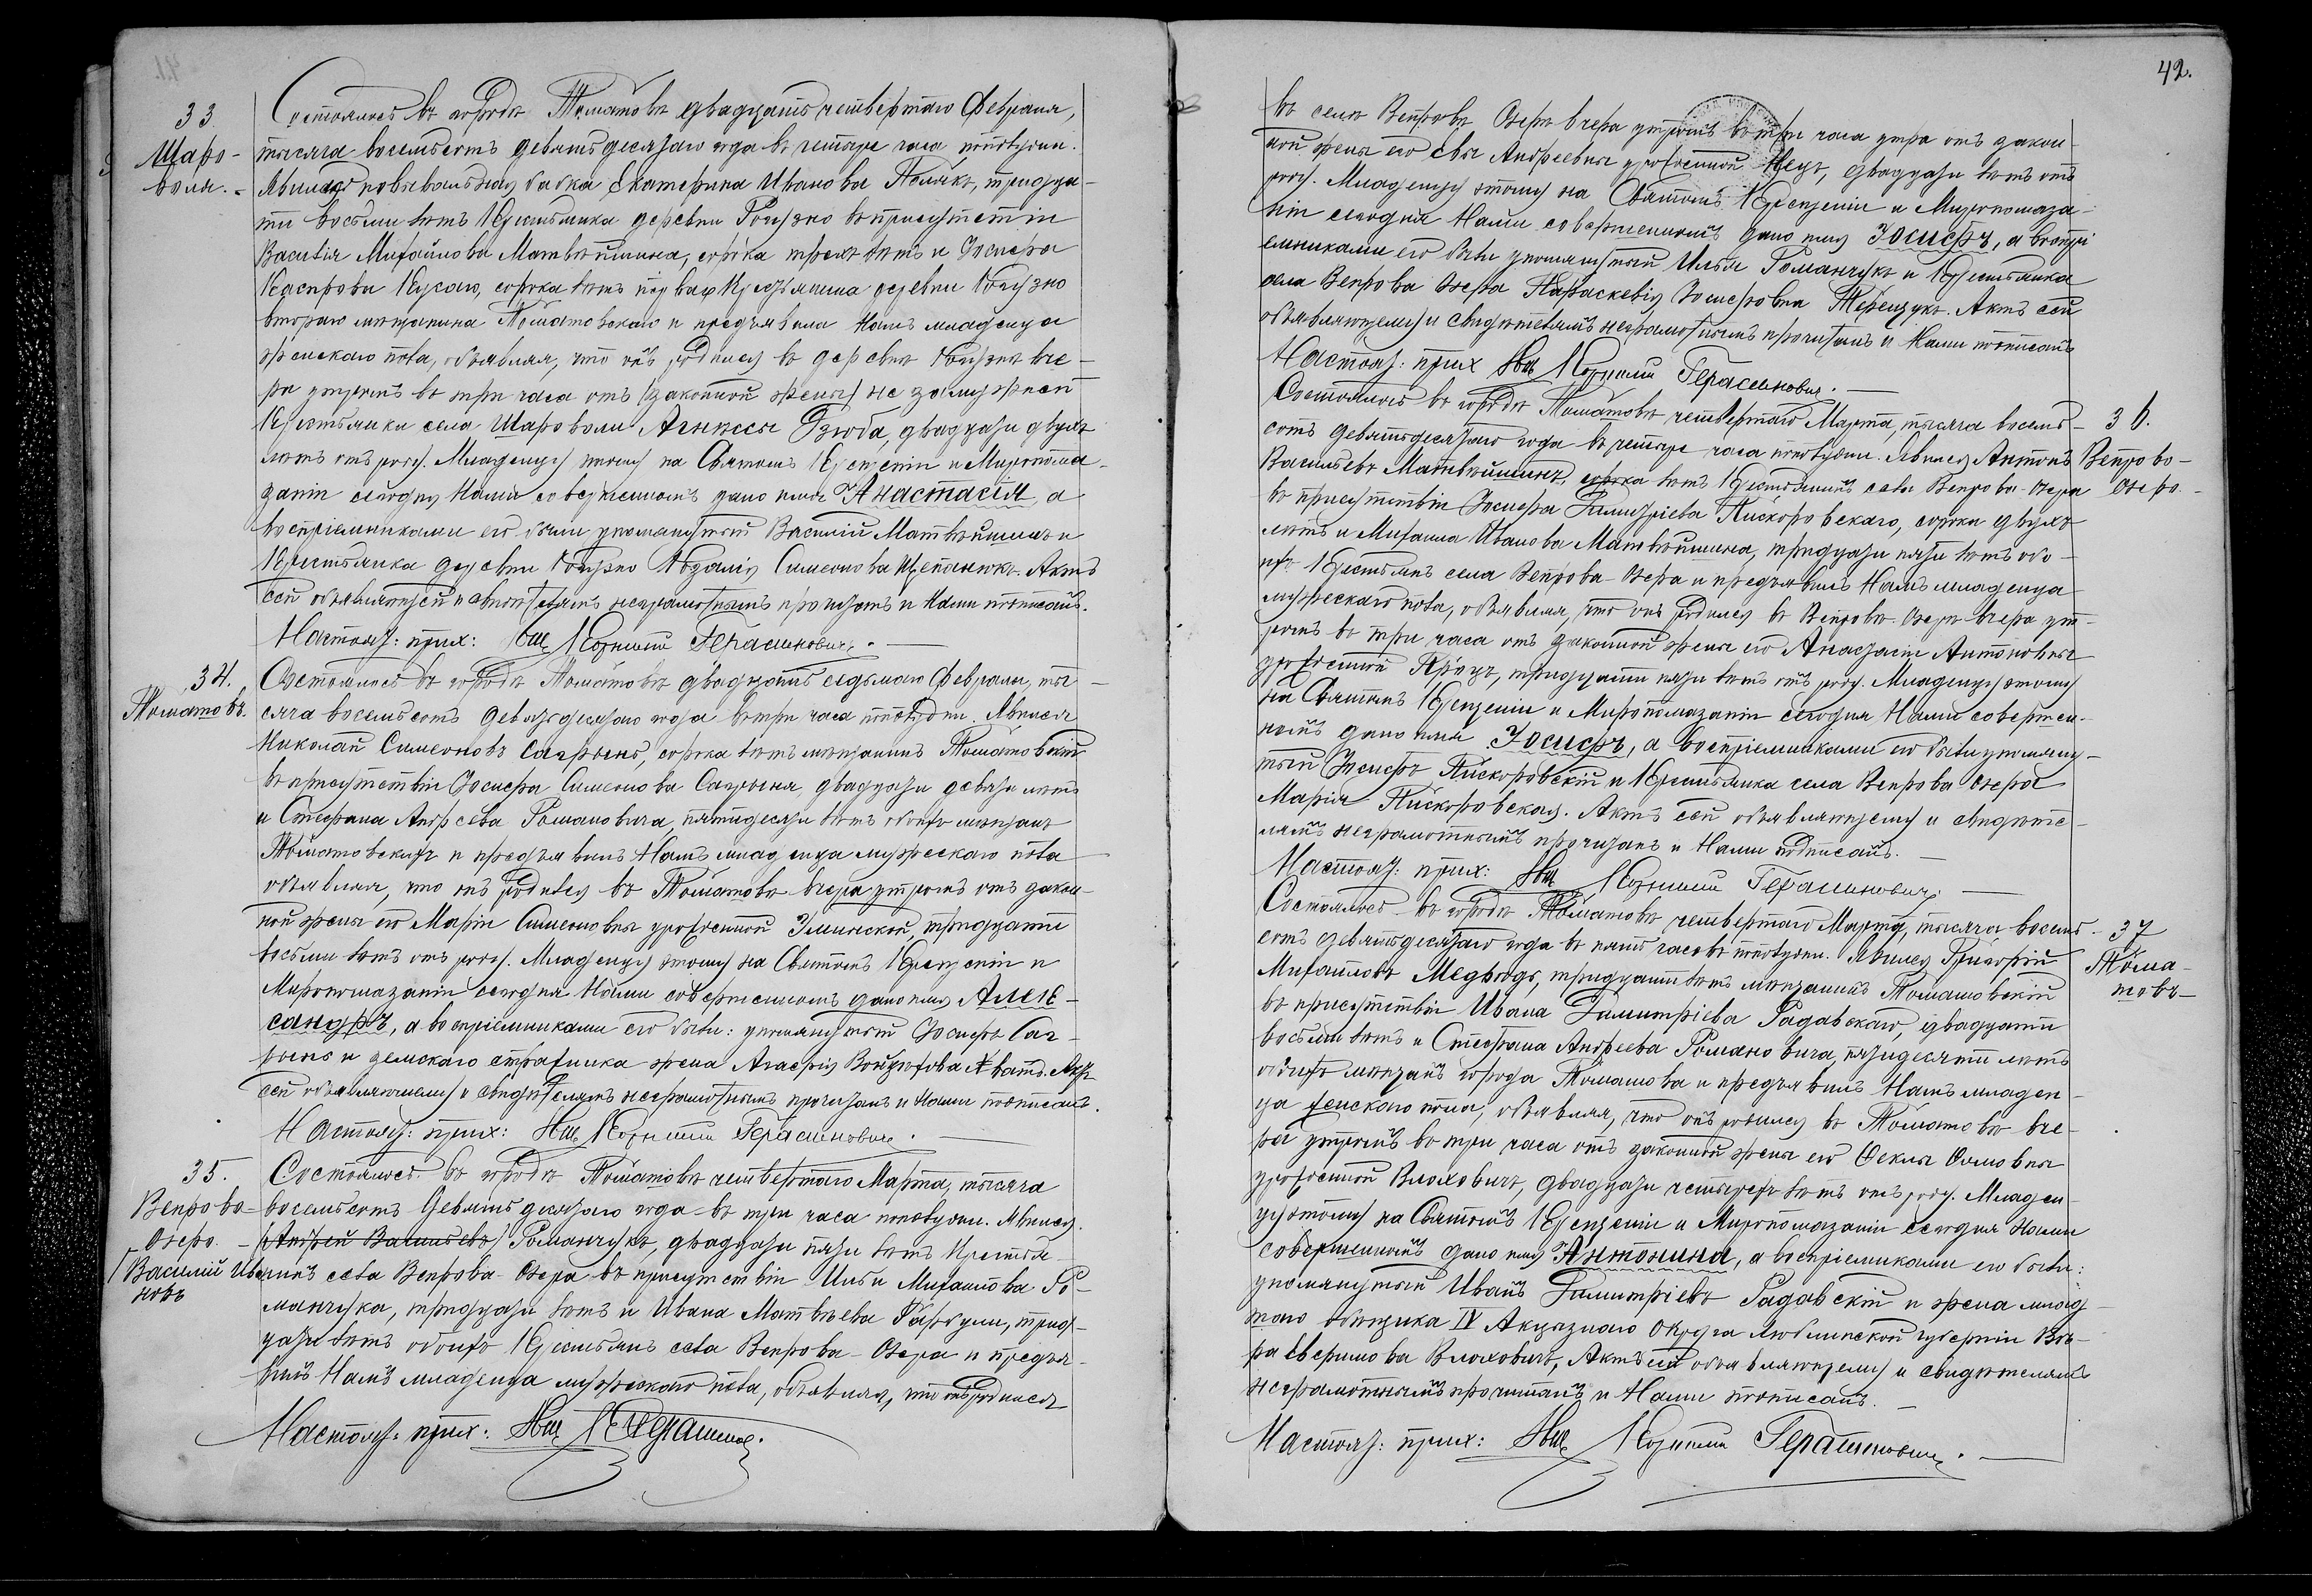 33
Шаро-
воля.-
Состоялось въ городѣ Томашовѣ двадцать четвертаго Февраля,
тысяча восемьсотъ девятьдесятаго года въ четыре часа пополудни.
Явилась повивальная бабка Екатерина Иванова Полякъ, тридца-
ти восьми лѣтъ Крестьянка деревни Рогузно въ присутствіи
Василія Михайлова Матвѣйшина, сорока трехъ лѣтъ и Іосифа
Каспрова Кусаго, сорока лѣтъ перваго Крестьянина деревни Рогузно
втораго мѣщанина Томашовскаго и предъявила Намъ младенца
женскаго пола, объявляя, что онъ родился въ деревнѣ Рогузнѣ вче-
ра утромъ въ три часа отъ (законной жены) не замужней
Крестьянки села Шароволи Агнессы Дзюба, двадцати двухъ
лѣтъ отъ роду. Младенцу этому на Святомъ Крещеніи и Миропома-
заніи сегодня Нами совершенномъ дано имя Анастасія, а
воспріемниками его были упомянутый Василій Матвѣйшинъ и
Крестьянка деревни Рогузно Розалія Симеонова Щепанюкъ. Актъ
сей объявляющей и свидѣтелямъ неграмотнымъ прочитанъ и Нами подписанъ.
Настоят: прих: Свщ Корнилій Герасимовичъ.
34.
Томашовъ.
Состоялось въ городѣ Томашовѣ двадцать седьмаго Февраля, ты-
сяча восемьсотъ девятьдесятаго года въ три часа пополудни. Явился
Николай Симеоновъ Сагрынь, сорока лѣтъ мѣщанинъ Томашовскій
въ присутствіи Іосифа Симеонова Сагрыня, двадцати девяти лѣтъ
и Стефана Андреева Романовича, пятидесяти лѣтъ обоихъ мѣщанъ
Томашовскихъ и предъявилъ Намъ младенца мужескаго пола
объявляя, что онъ родился въ Томашовѣ вчера утромъ отъ закон-
ной жены его Маріи Симеоновны урожденной Зминской, тридцати
восьми лѣтъ отъ роду. Младенцу этому на Святомъ Крещеніи и
Миропомазаніи сегодня Нами совершенномъ дано имя Алек-
сандръ, а воспріемниками его были: упомянутый Іосифъ Саг-
рынь и земскаго стражника жена Агафія Хватъ. Актъ
сей объявляющему и свидѣтелямъ неграмотнымъ прочитанъ и Нами подписанъ.
Настоят: прих: Свщ Корнилій Герасимовичъ.
35.
Вепрово-
Озеро.-
Василій Ива-
новъ
Состоялось въ городѣ Томашовѣ четвертаго Марта, тысяча
восемьсотъ девятьдесятаго года въ три часа пополудни. Явился
(Андрей Васильевъ) Романчукъ, двадцати пяти лѣтъ Крестья-
нинъ села Вепрова-Озера въ присутствіи Ильи Михайлова Ро-
манчука, тридцати лѣтъ и Ивана Матвѣева Фарбули, трид-
цати лѣтъ обоихъ Крестьянъ села Вепрова-Озера и предъя-
вилъ Намъ младенца мужескаго пола, объявляя, что онъ родился
Настоят: прих: Свщ К Герасимов.
42.
въ селѣ Вепровѣ Озерѣ вчера утромъ въ три часа утра отъ закон-
ной жены его Евы Андреевны урожденной Нецъ, двадцати лѣтъ отъ
роду. Младенцу этому на Святомъ Крещеніи и Миропомаза-
ніи сегодня Нами совершенномъ дано имя Іосифъ, а воспрі-
емниками его были упомянутый Илья Романчукъ и Крестьянка
села Вепрова Озера Параскевія Іосифовна Терещукъ. Актъ сей
объявляющему и свидѣтелямъ неграмотнымъ прочитанъ и Нами подписанъ
Настоят: прих Свщ Корнилій Герасимовичъ.
36.
Вепрово-
Озеро.-
Состоялось въ городѣ Томашовѣ четвертаго Марта, тысяча восемь-
сотъ девятьдесятаго года въ четыре часа пополудни. Явился Антонъ
Васильевъ Матвѣйшинъ, сорока лѣтъ Крестьянинъ села Вепрова-Озера
въ присутствіи Іосифа Димитріева Пискоровскаго, сорока двухъ
лѣтъ и Михаила Иванова Матвѣйшина, тридцати пяти лѣтъ обо-
ихъ Крестьянъ села Вепрова-Озера и предъявилъ Намъ младенца
мужескаго пола, объявляя, что онъ родился въ Вепровѣ-Озерѣ вчера ут-
ромъ въ три часа отъ законной жены его Анастасіи Антоновны
урожденной Кроцъ, тридцати пяти лѣтъ отъ роду. Младенцу этому
на Святомъ Крещеніи и Миропомазаніи сегодня Нами совершен-
номъ дано имя Іосифъ, а воспріемниками его были упомяну-
тый Іосифъ Пискоровскій и Крестьянка села Вепрова Озера
Марія Пискоровская. Актъ сей объявляющему и свидѣте-
лямъ неграмотнымъ прочитанъ и Нами подписанъ.
Настоят: прих: Свщ Корнилій Герасимовичъ.
37
Тома-
шовъ-
Состоялось въ городѣ Томашовѣ четвертаго Марта, тысяча восемь-
сотъ девятьдесятаго года въ пять часовъ пополудни. Явился Григорій
Михайловъ Медвѣдь, тридцати лѣтъ мѣщанинъ Томашовскій
въ присутствіи Ивана Димитріева Радавскаго, двадцати
восьми лѣтъ и Стефана Андреева Романовича, пятидесяти лѣтъ
обоихъ мѣщанъ города Томашова и предъявилъ Намъ младен-
ца женскаго пола, объявляя, что онъ родился въ Томашовѣ вче-
ра утромъ въ три часа отъ законной жены его Феклы
урожденной Влоховичъ, двадцати четырехъ лѣтъ отъ роду. Младен-
цу этому на Святомъ Крещеніи и Миропомазаніи сегодня Нами
совершенномъ дано имя Антонина, а воспріемниками его были:
упомянутый Иванъ Димитріевъ Радавскій и жена млад-
шаго объѣщика IV Акцызнаго Округа Люблинской губерніи Вѣ-
ра Северинова Влоховичъ, Актъ сей объявляющему и свидѣтелямъ
неграмотнымъ прочитанъ и Нами подписанъ.
Настоят: прих: Свщ Корнилій Герасимовичъ.